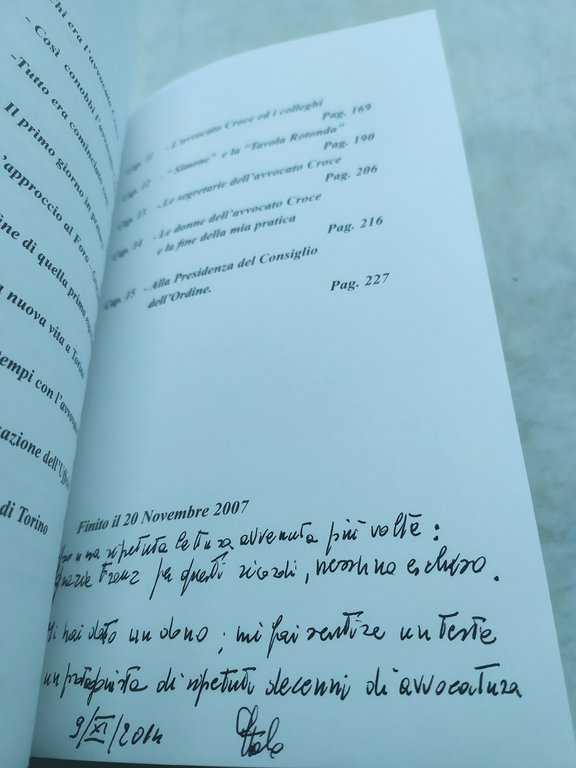 hi era l'avvocato
- Così conobbi l'avvocato
-Tutto era cominciato così
Il primo giorno in
'approccio al Foro -
ine di quella prima
a nuova vita a Torino
tempi con l'avvocato
zazione dell'
di Torino
Cap. 11 -L'avvocato Croce ed i colleghi
Pag. 169
Cap. 12 - "Simone" e la "Tavola Rotonda"
Pag. 190
Cap. 13 -Le segretarie dell'avvocato Croce
Pag. 206
Cap. 14 -Le donne dell'avvocato Croce
e la fine della mia pratica
Pag. 216
Cap. 15 -Alla Presidenza del Consiglio
dell'Ordine.
Pag. 227
Finito il 20 Novembre 2007
una ripetuta lettura avvenuta più volte:
grazie Franz per questi ricordi, nessuno escluso.
Mi hai dato un dono; mi fai sentire un teste
un protagonista di ripetuti decenni di avvocatura
9/XI/2014
Italo